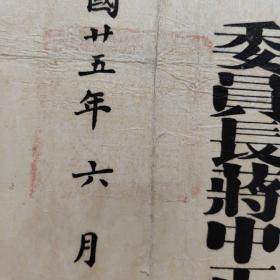 委員長蔣中
國廿五年六月